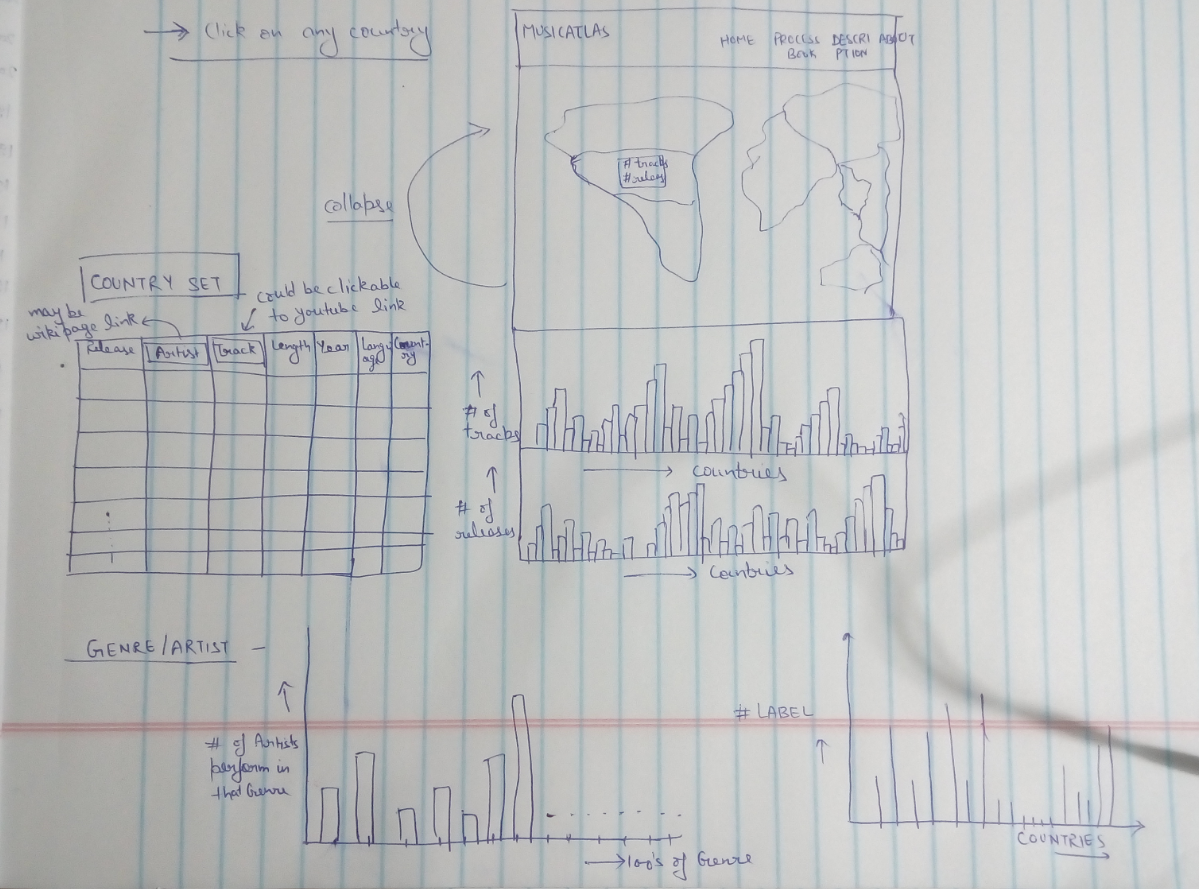 → Click on any country
MUSICATLAS
HOME PROCESS DESCRI ABOUT
BOOK PTION
# tracks
# releas
collapse
COUNTRY SET
could be clickable
to youtube link
may be
wiki page link
Release Artist Track Length Year Langu Count-
age ry
# of
tracks
→ Countries
# of
releases
→ Countries
GENRE/ARTIST –
# of Artists
perform in
that Genre
→ 100's of Genre
# LABEL
COUNTRIES